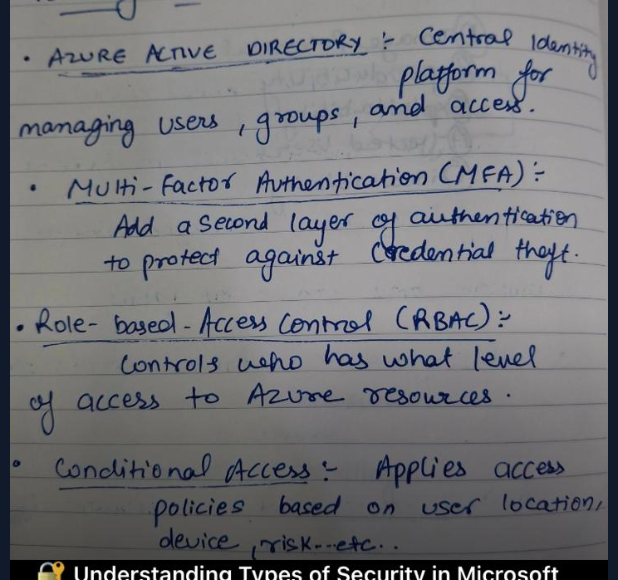 • AZURE ACTIVE DIRECTORY :- Central Identity
platform for
managing users, groups, and access.
• Multi-Factor Authentication (MFA) :-
Add a second layer of authentication
to protect against Credential theft.
• Role-based-Access Control (RBAC) :-
Controls who has what level
of access to Azure resources.
• Conditional Access :- Applies access
policies based on user location,
device, risk--etc..
🔐 Understanding Types of Security in Microsoft